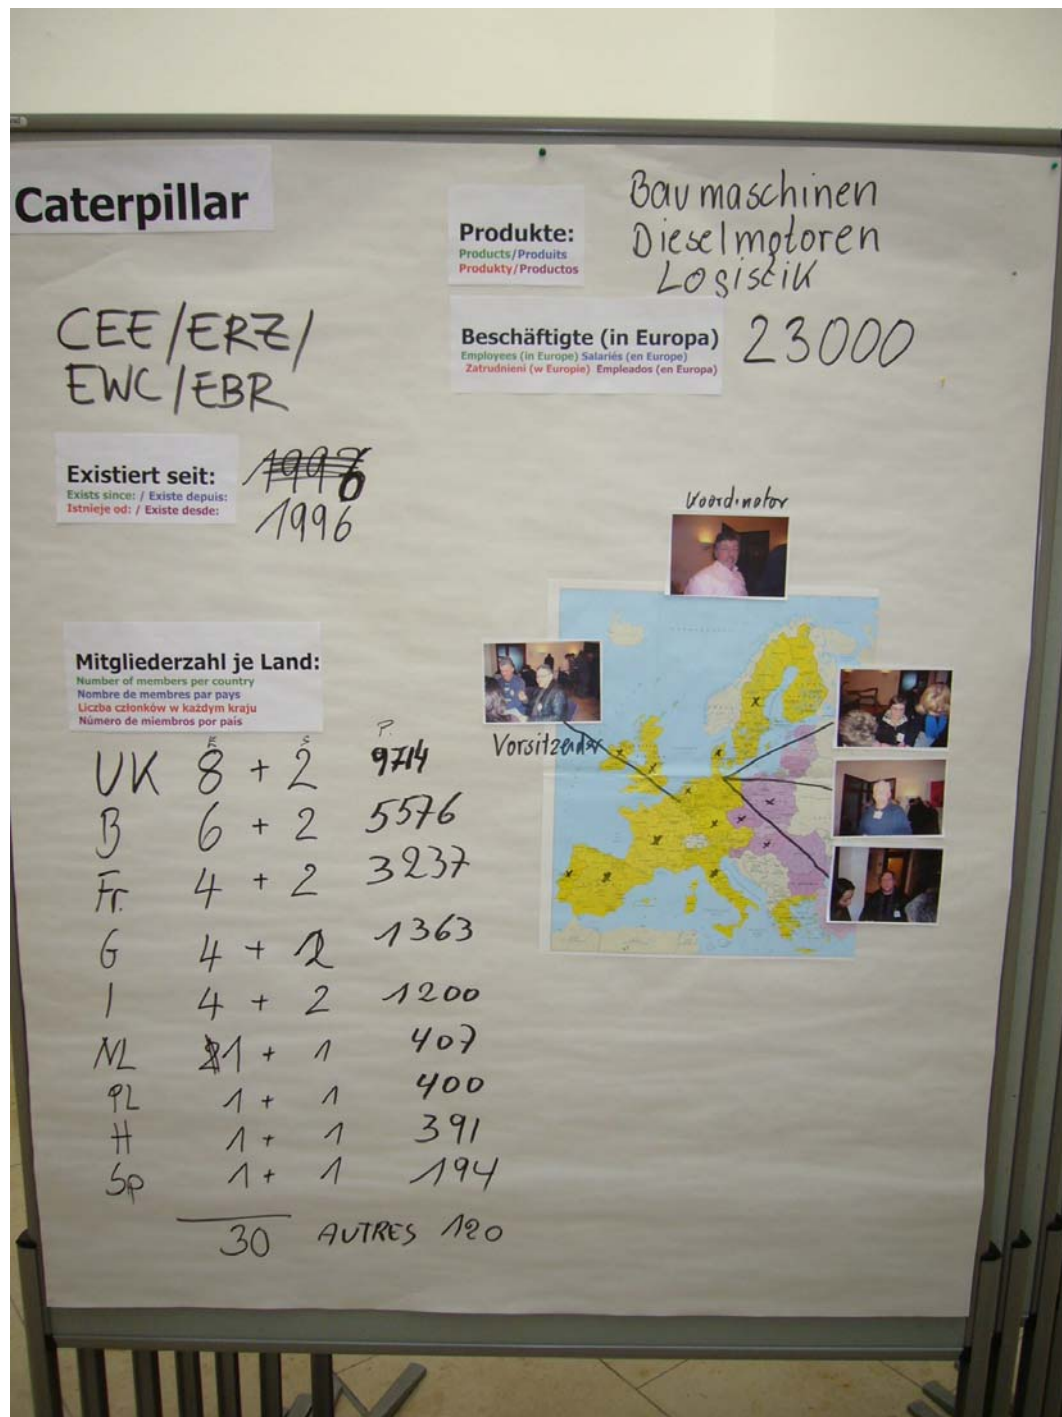 Caterpillar
Produkte:
Products/Produits
Produkty/Productos
Baumaschinen
Dieselmotoren
Logistik
CEE/ERZ/
EWC/EBR
Beschäftigte (in Europa)
Employees (in Europe) Salariés (en Europe)
Zatrudnieni (w Europie) Empleados (en Europa)
23000
Existiert seit:
Exists since: / Existe depuis:
Istnieje od: / Existe desde:
1996
Koordinator
Vorsitzender
Mitgliederzahl je Land:
Number of members per country
Nombre de membres par pays
Liczba członków w każdym kraju
Número de miembros por país
E S P.
UK 8 + 2 9714
B 6 + 2 5576
Fr. 4 + 2 3237
G 4 + 2 1363
I 4 + 2 1200
NL 1 + 1 407
PL 1 + 1 400
H 1 + 1 391
Sp 1 + 1 194
30 AUTRES 120